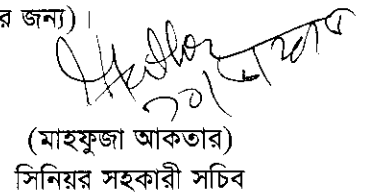 র জন্য)।
(মাহফুজা আকতার)
সিনিয়র সহকারী সচিব